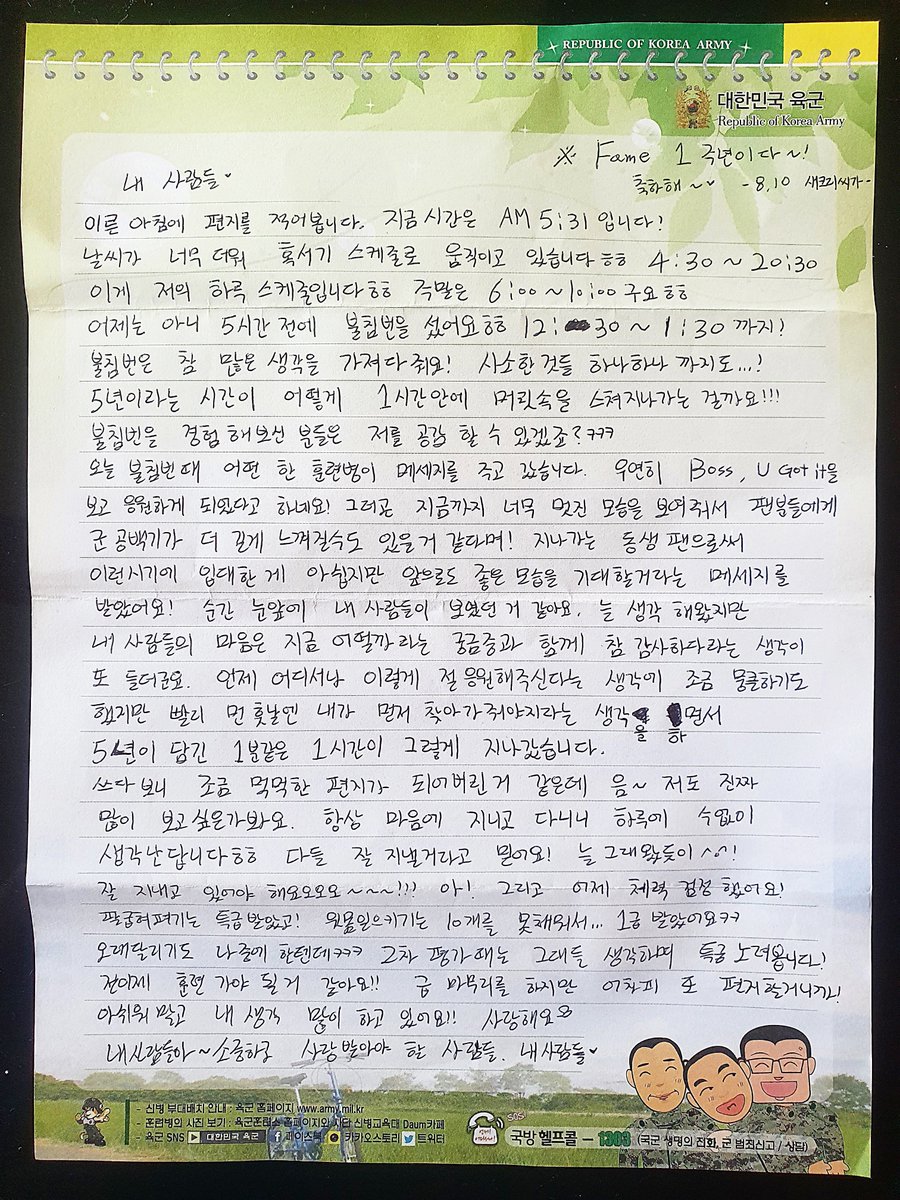 REPUBLIC OF KOREA ARMY
대한민국 육군
Republic of Korea Army
※ Fame 1주년이다~!
축하해~♡ -8.10 새크리씨가-
내 사람들♥
이른 아침에 편지를 적어봅니다. 지금 시간은 AM 5:31 입니다!
날씨가 너무 더워 혹서기 스케줄로 움직이고 있습니다ㅎㅎ 4:30 ~ 20:30
이게 저의 하루 스케줄입니다ㅎㅎ 주말은 6:00~10:00 구요ㅎㅎ
어제는 아니 5시간 전에 불침번을 섰어요ㅎㅎ 12:30 ~ 1:30 까지!
불침번은 참 많은 생각을 가져다 줘요! 사소한것들 하나하나 까지도...!
5년이라는 시간이 어떻게 1시간안에 머릿속을 스쳐지나가는 걸까요!!!
불침번을 경험 해보신 분들은 저를 공감 할 수 있겠죠?ㅋㅋㅋ
오늘 불침번때 어떤 한 훈련병이 메세지를 주고 갔습니다. 우연히 Boss, U Got it을
보고 응원하게 되었다고 하네요! 그러곤 지금까지 너무 멋진 모습을 보여줘서 팬분들에게
군 공백기가 더 길게 느껴질수도 있을거 같다며! 지나가는 동생 팬으로써
이런시기에 입대한 게 아쉽지만 앞으로도 좋은 모습을 기대할거라는 메세지를
받았어요! 순간 눈앞에 내 사람들이 보였던 거 같아요. 늘 생각 해왔지만
내 사람들의 마음은 지금 어떨까 라는 궁금증과 함께 참 감사하다라는 생각이
또 들더군요. 언제 어디서나 이렇게 절 응원해주신다는 생각에 조금 뭉클하기도
했지만 빨리 먼 훗날엔 내가 먼저 찾아가줘야지라는 생각을 하면서
5년이 담긴 1분같은 1시간이 그렇게 지나갔습니다.
쓰다보니 조금 먹먹한 편지가 되어버린거 같은데 음~ 저도 진짜
많이 보고싶은가봐요. 항상 마음에 지니고 다니니 하루에 수없이
생각난답니다ㅎㅎ 다들 잘 지낼거라고 믿어요! 늘 그래왔듯이 ^^!
잘 지내고 있어야 해요오오오~~~!!! 아! 그리고 어제 체력 검정 했어요!
팔굽혀펴기는 특급받았고! 윗몸일으키기는 10개를 못채워서... 1급 받았어요ㅋㅋ
오래달리기도 나중에 한텐데ㅋㅋㅋ 2차 평가때는 그대들 생각하며 특급 노려봅니다!
전이제 훈련 가야 될거 같아요!! 급 마무리를 하지만 어차피 또 편지할거니까!
아쉬워 말고 내 생각 많이 하고 있어요!! 사랑해요
내사람들아~소중하고 사랑받아야 할 사람들. 내사람들♥
- 신병 부대배치 안내 : 육군 홈페이지 www.army.mil.kr
- 훈련병의 사진 보기 : 육군훈련소 홈페이지와 사단 신병교육대 Daum카페
- 육군 SNS 대한민국 육군 페이스북 카카오스토리 트위터
SOS
국방 헬프콜 - 1303 (국군 생명의 전화, 군 범죄신고 / 상담)